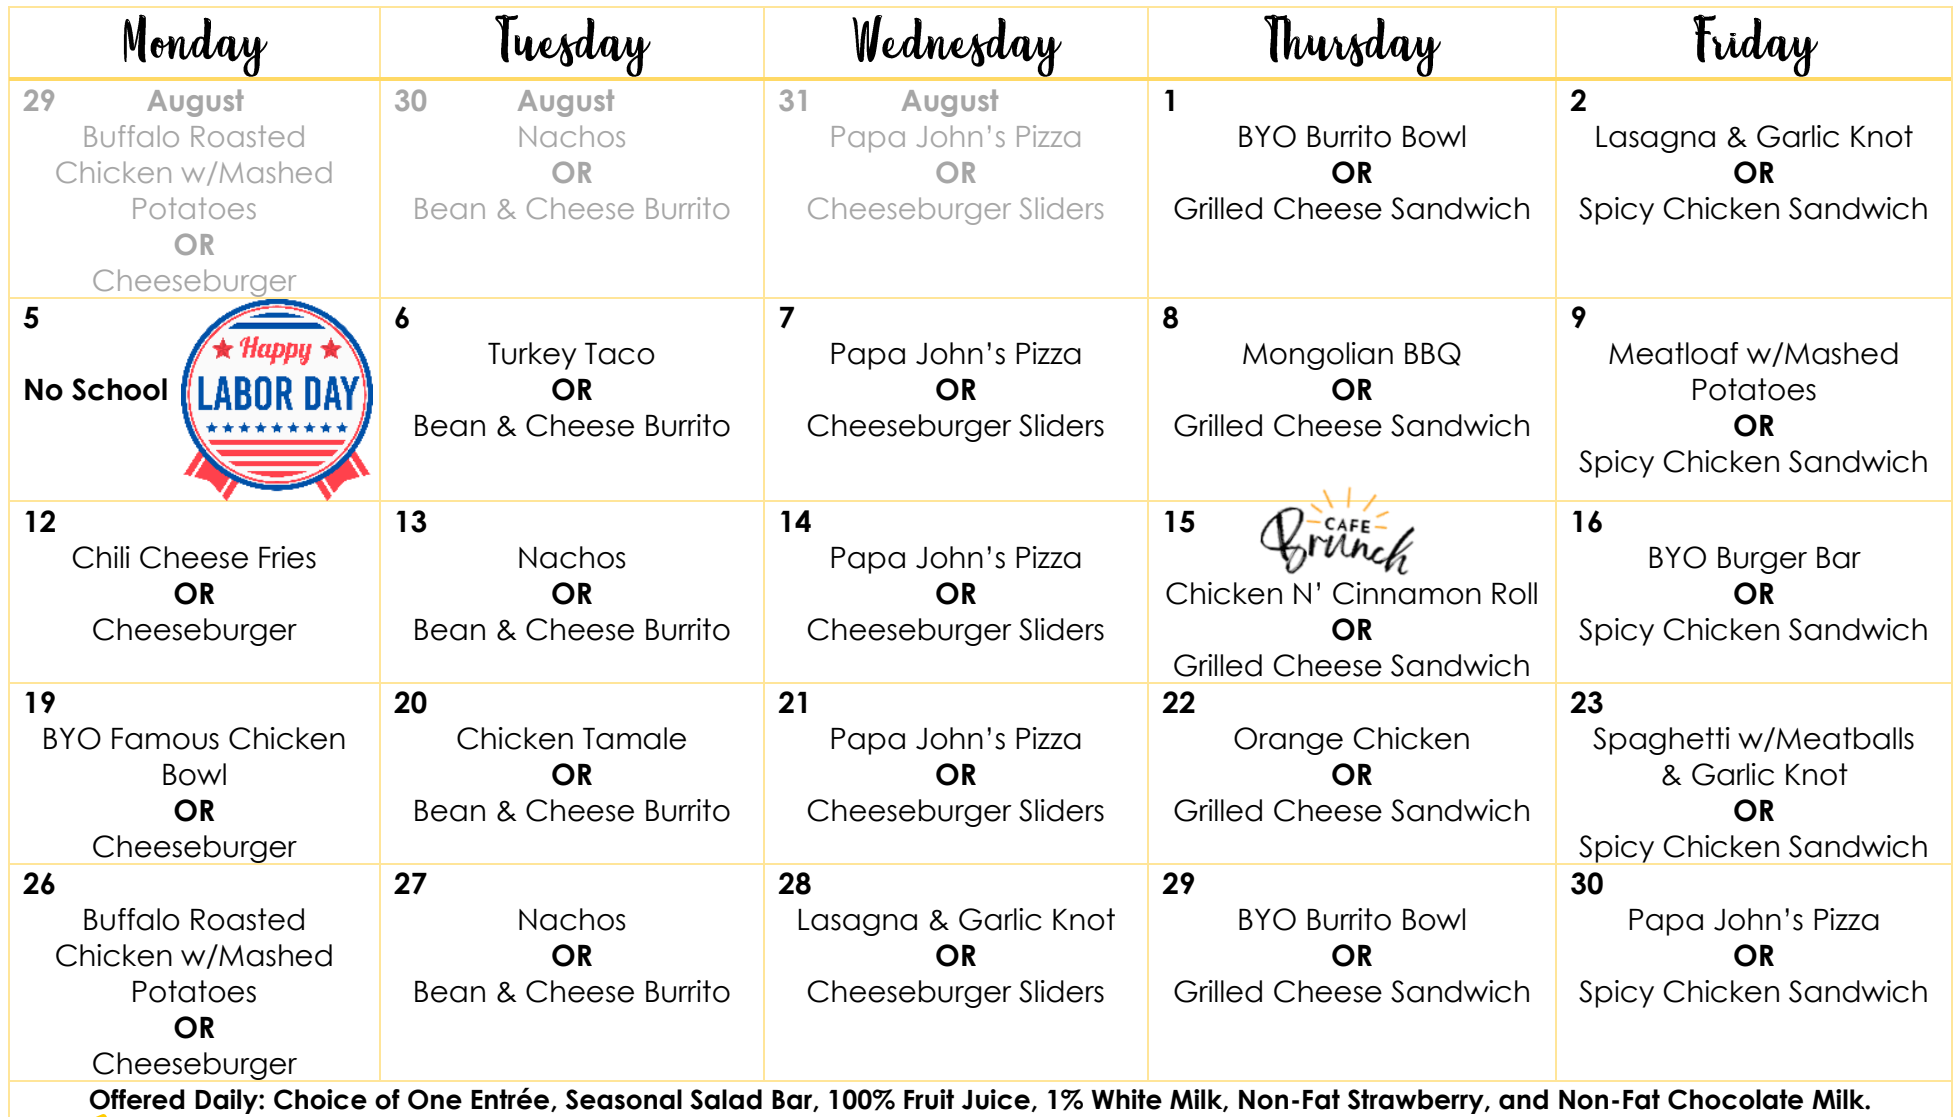 Monday Tuesday Wednesday Thursday Friday
29 August
Buffalo Roasted
Chicken w/Mashed
Potatoes
OR
Cheeseburger
30 August
Nachos
OR
Bean & Cheese Burrito
31 August
Papa John’s Pizza
OR
Cheeseburger Sliders
1
BYO Burrito Bowl
OR
Grilled Cheese Sandwich
2
Lasagna & Garlic Knot
OR
Spicy Chicken Sandwich
5
No School
Happy
LABOR DAY
6
Turkey Taco
OR
Bean & Cheese Burrito
7
Papa John’s Pizza
OR
Cheeseburger Sliders
8
Mongolian BBQ
OR
Grilled Cheese Sandwich
9
Meatloaf w/Mashed
Potatoes
OR
Spicy Chicken Sandwich
12
Chili Cheese Fries
OR
Cheeseburger
13
Nachos
OR
Bean & Cheese Burrito
14
Papa John’s Pizza
OR
Cheeseburger Sliders
15
CAFE
Brunch
Chicken N’ Cinnamon Roll
OR
Grilled Cheese Sandwich
16
BYO Burger Bar
OR
Spicy Chicken Sandwich
19
BYO Famous Chicken
Bowl
OR
Cheeseburger
20
Chicken Tamale
OR
Bean & Cheese Burrito
21
Papa John’s Pizza
OR
Cheeseburger Sliders
22
Orange Chicken
OR
Grilled Cheese Sandwich
23
Spaghetti w/Meatballs
& Garlic Knot
OR
Spicy Chicken Sandwich
26
Buffalo Roasted
Chicken w/Mashed
Potatoes
OR
Cheeseburger
27
Nachos
OR
Bean & Cheese Burrito
28
Lasagna & Garlic Knot
OR
Cheeseburger Sliders
29
BYO Burrito Bowl
OR
Grilled Cheese Sandwich
30
Papa John’s Pizza
OR
Spicy Chicken Sandwich
Offered Daily: Choice of One Entrée, Seasonal Salad Bar, 100% Fruit Juice, 1% White Milk, Non-Fat Strawberry, and Non-Fat Chocolate Milk.